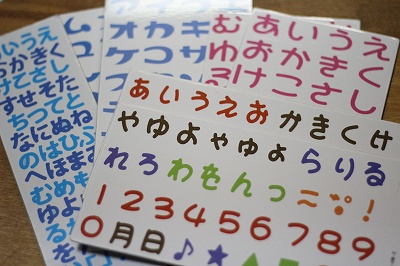 あいうえ
おかきく
けこさし
すせそた
ちつてと
なにぬね
のはひふ
へほまみ
むめも
ゆよ
オカキ
ケコサ
む
ゆ
あいうえ
おかきく
けこさし
あいうえおかきくけ
やゆよゃゅょらりる
れろわをんっ~゛゜!
123456789
0月日♪★